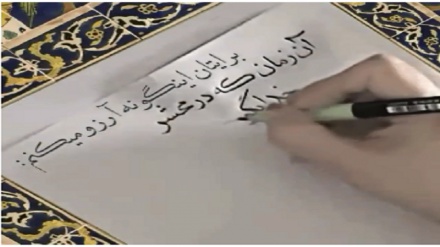 برایتان اینگونه آرزو میکنم:
آن زمان که در محشر